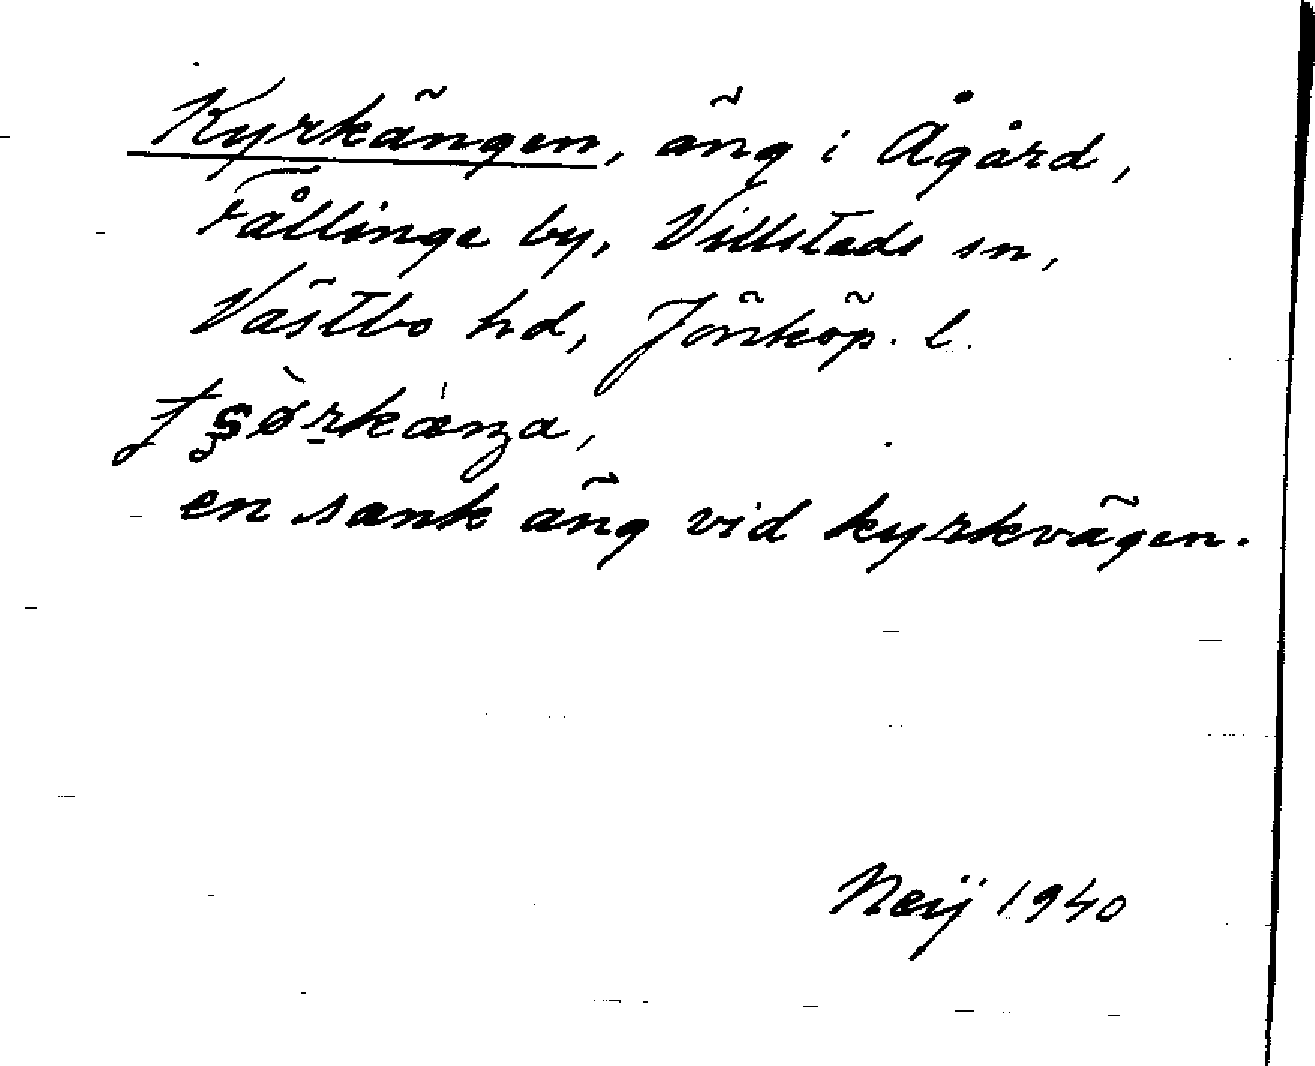 Kyrkängen, äng i Ågård,
Fållinge by, Villstads sn,
Västbo hd, Jönköp. l.
en sank äng vid kyrkvägen.
Neij 1940